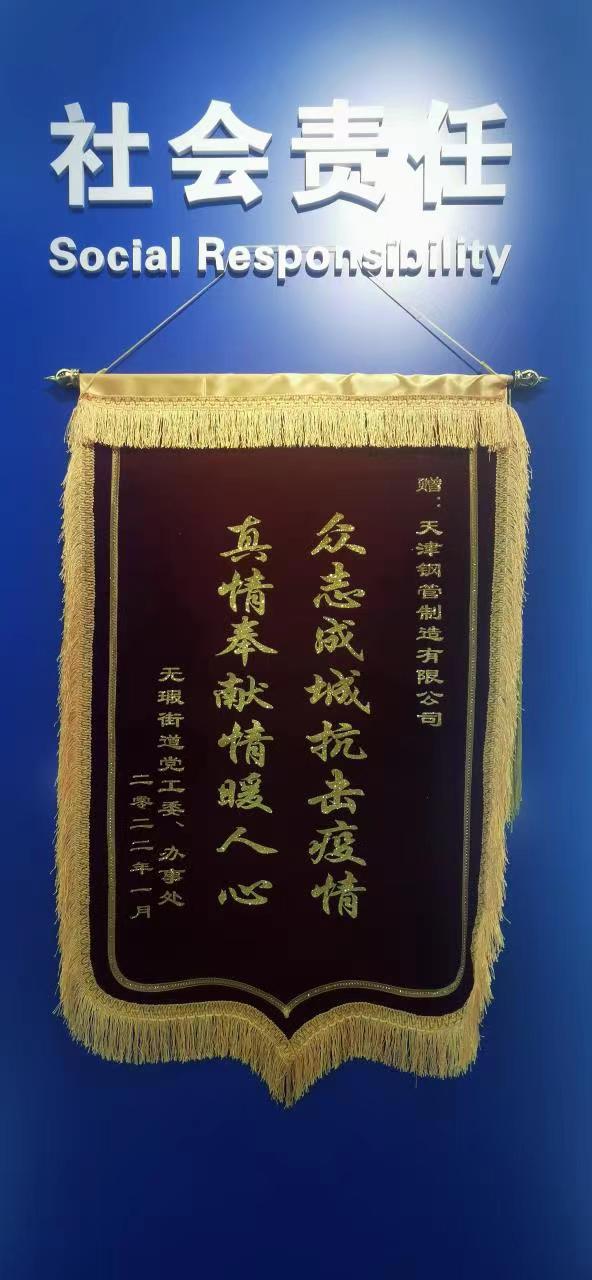 社会责任
Social Responsibility
赠：天津钢管制造有限公司
众志成城抗击疫情
真情奉献情暖人心
无瑕街道党工委、办事处
二零二二年一月